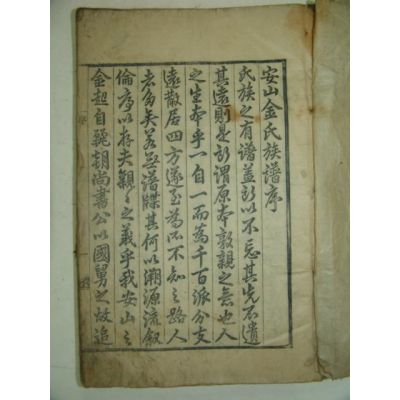 安山金氏族譜序
氏族之有譜盖所以不忘其先不遺
其遠則是所謂原本敦親之意也人
之生本乎一自一而萬千百派分支
遠散居四方遂至為不知之路人
者多矣若無譜牒其何以溯源流叙
倫序以存夫親親之義乎我安山之
金起自麗朝尚書公以國舅之故追